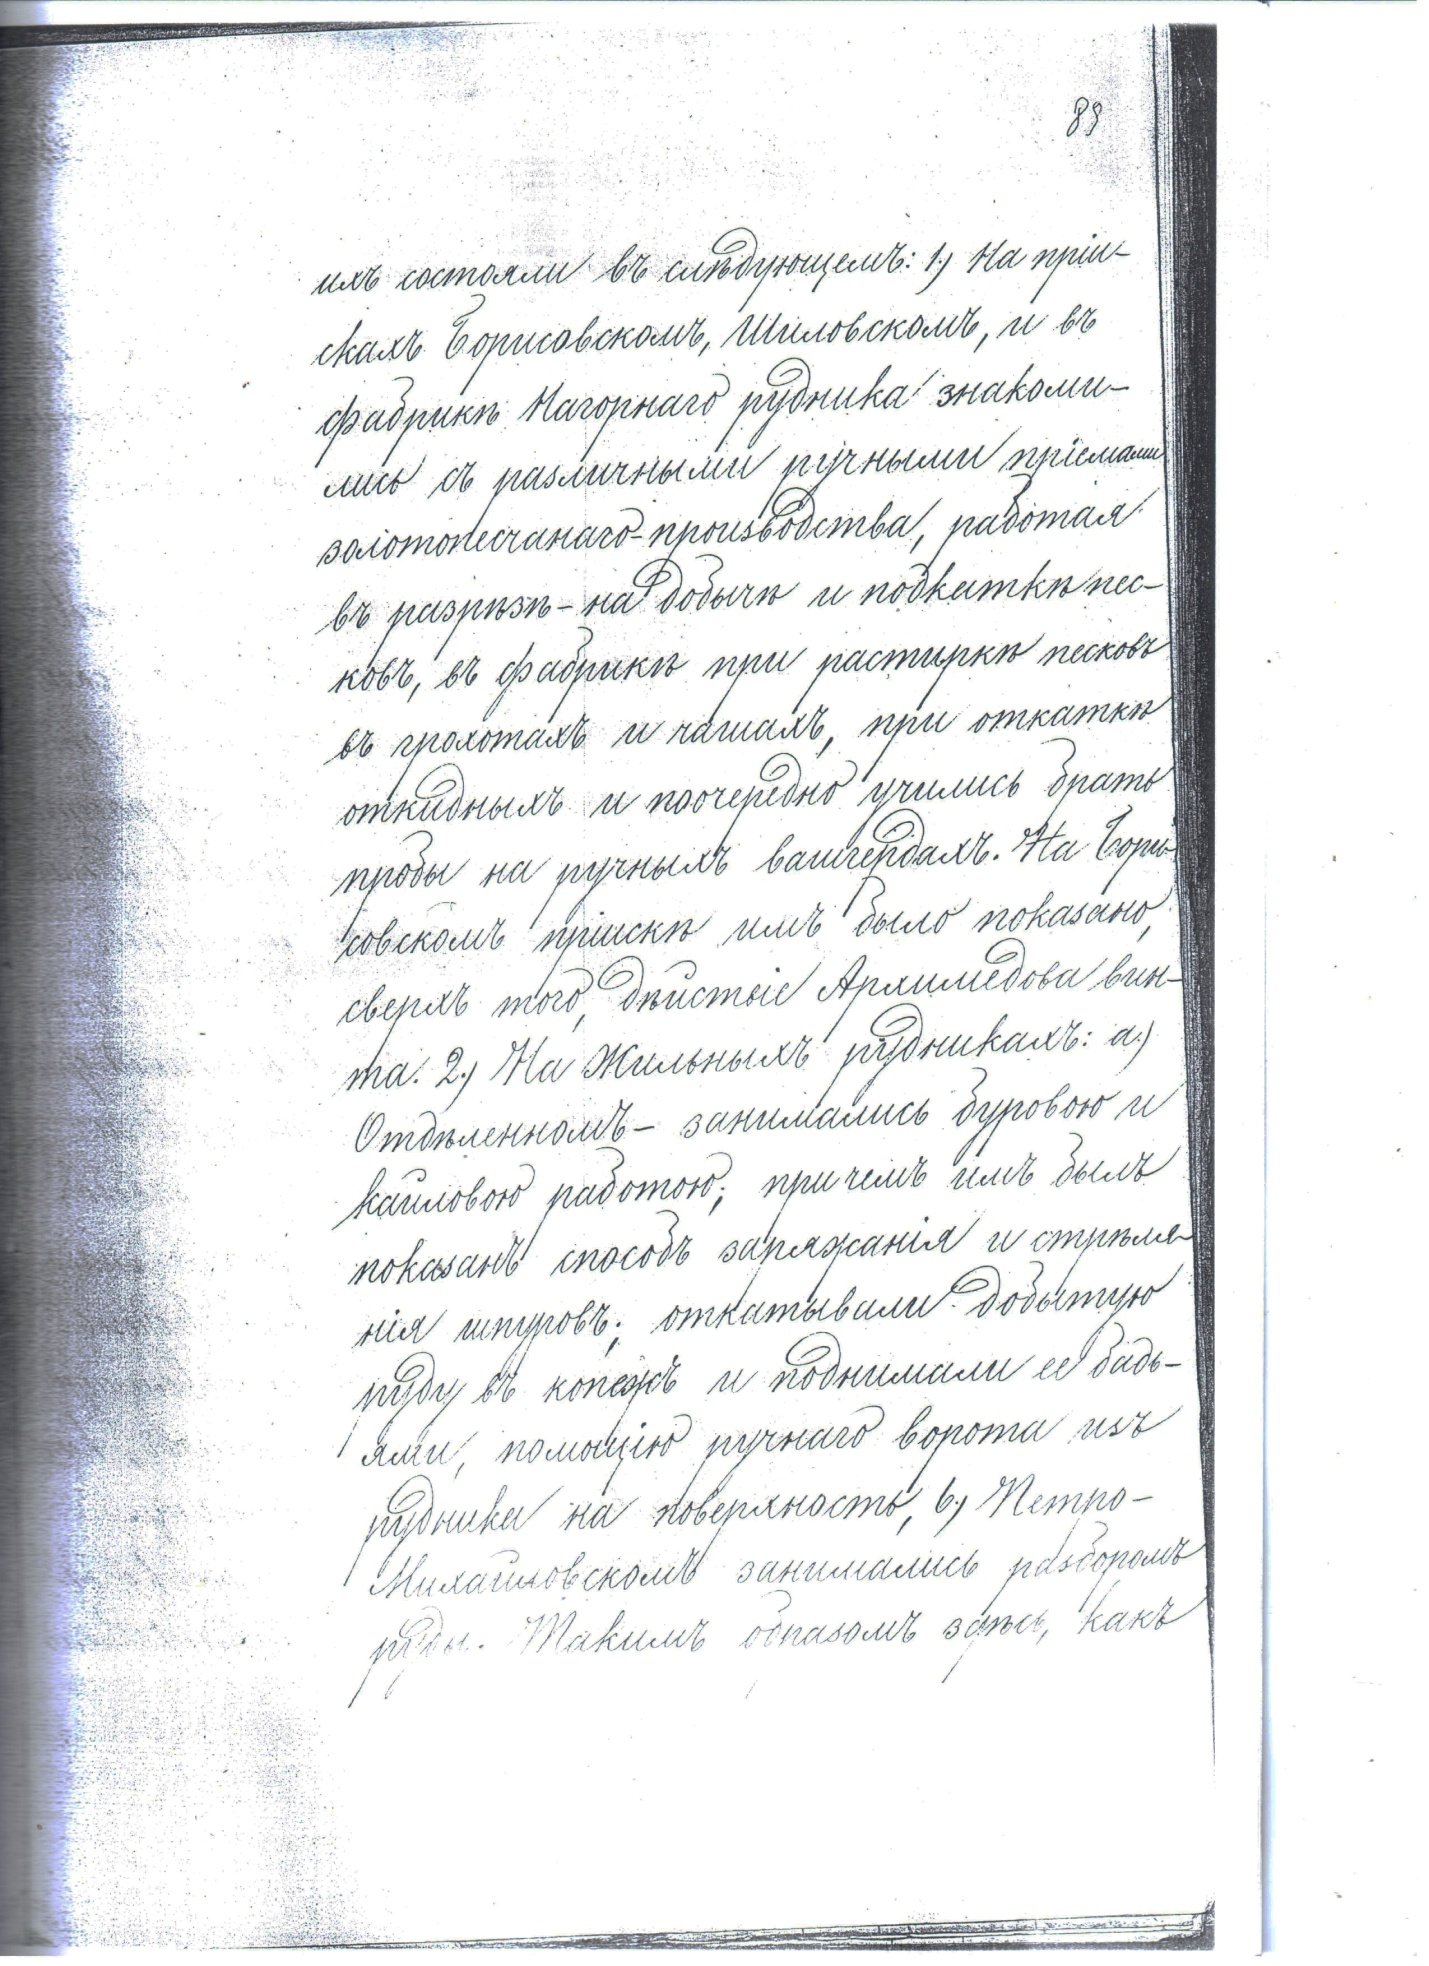 89
ихъ состояли въ слѣдующемъ: 1.) На пріи-
скахъ Борисовскомъ, Шиловскомъ, и въ
фабрикѣ Нагорнаго рудника знакоми-
лись съ различными ручными пріемами
золотопесчанаго производства, работая
въ разрѣзѣ – на добычѣ и подкаткѣ пес-
ковъ, въ фабрикѣ при растиркѣ песковъ
въ грохотахъ и чашахъ, при откаткѣ
откидныхъ и поочередно учились брать
пробы на ручныхъ вашгердахъ. На Бори-
совскомъ пріискѣ имъ было показано,
сверхъ того, дѣйствіе Архимедова вин-
та. 2.) На Жильныхъ рудникахъ: а.)
Отдѣленномъ – занимались буровою и
кайловою работою; при чемъ имъ былъ
показанъ способъ заряжанія и стрѣля-
нія шпуровъ; откатывали добытую
руду въ копежъ и поднимали ее бадь-
ями, помощію ручнаго ворота изъ
рудника на поверхность, b.) Петро-
Михайловскомъ занимались разборомъ
руды. Такимъ образомъ здѣсь, какъ